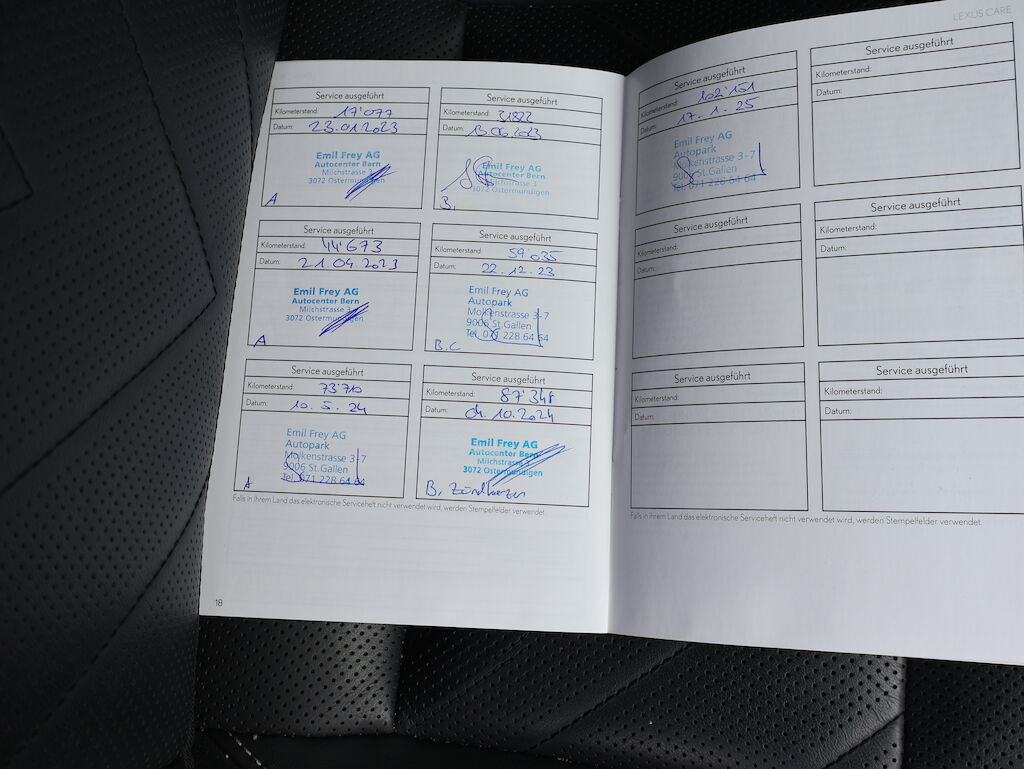 Service ausgeführt
Kilometerstand: 17'077
Datum: 23.01.2023
Emil Frey AG
Autocenter Bern
Milchstrasse 3
3072 Ostermundigen
A
Service ausgeführt
Kilometerstand: 31822
Datum: 13.06.2023
Emil Frey AG
Autocenter Bern
Milchstrasse 3
3072 Ostermundigen
B.
Service ausgeführt
Kilometerstand: 44'673
Datum: 21.09.2023
Emil Frey AG
Autocenter Bern
Milchstrasse 3
3072 Ostermundigen
A
Service ausgeführt
Kilometerstand: 59'035
Datum: 22.12.23
Emil Frey AG
Autopark
Molkenstrasse 3-7
9006 St.Gallen
Tel. 071 228 64 64
B.C
Service ausgeführt
Kilometerstand:
Datum: 10.5.24
Emil Frey AG
Autopark
Molkenstrasse 3-7
9006 St.Gallen
Tel. 071 228 64 64
A
Service ausgeführt
Kilometerstand: 87'348
Datum: 04.10.2024
Emil Frey AG
Autocenter Bern
Milchstrasse 3
3072 Ostermundigen
B, Zündkerzen
Falls in Ihrem Land das elektronische Serviceheft nicht verwendet wird, werden Stempelfelder verwendet.
18
LEXUS CARE
Service ausgeführt
Kilometerstand: 102'151
Datum: 17.1.25
Emil Frey AG
Autopark
Molkenstrasse 3-7
9006 St.Gallen
Tel. 071 228 64 64
Service ausgeführt
Kilometerstand:
Datum:
Service ausgeführt
Kilometerstand:
Datum:
Service ausgeführt
Kilometerstand:
Datum:
Service ausgeführt
Kilometerstand:
Datum:
Service ausgeführt
Kilometerstand:
Datum:
Falls in Ihrem Land das elektronische Serviceheft nicht verwendet wird, werden Stempelfelder verwendet.